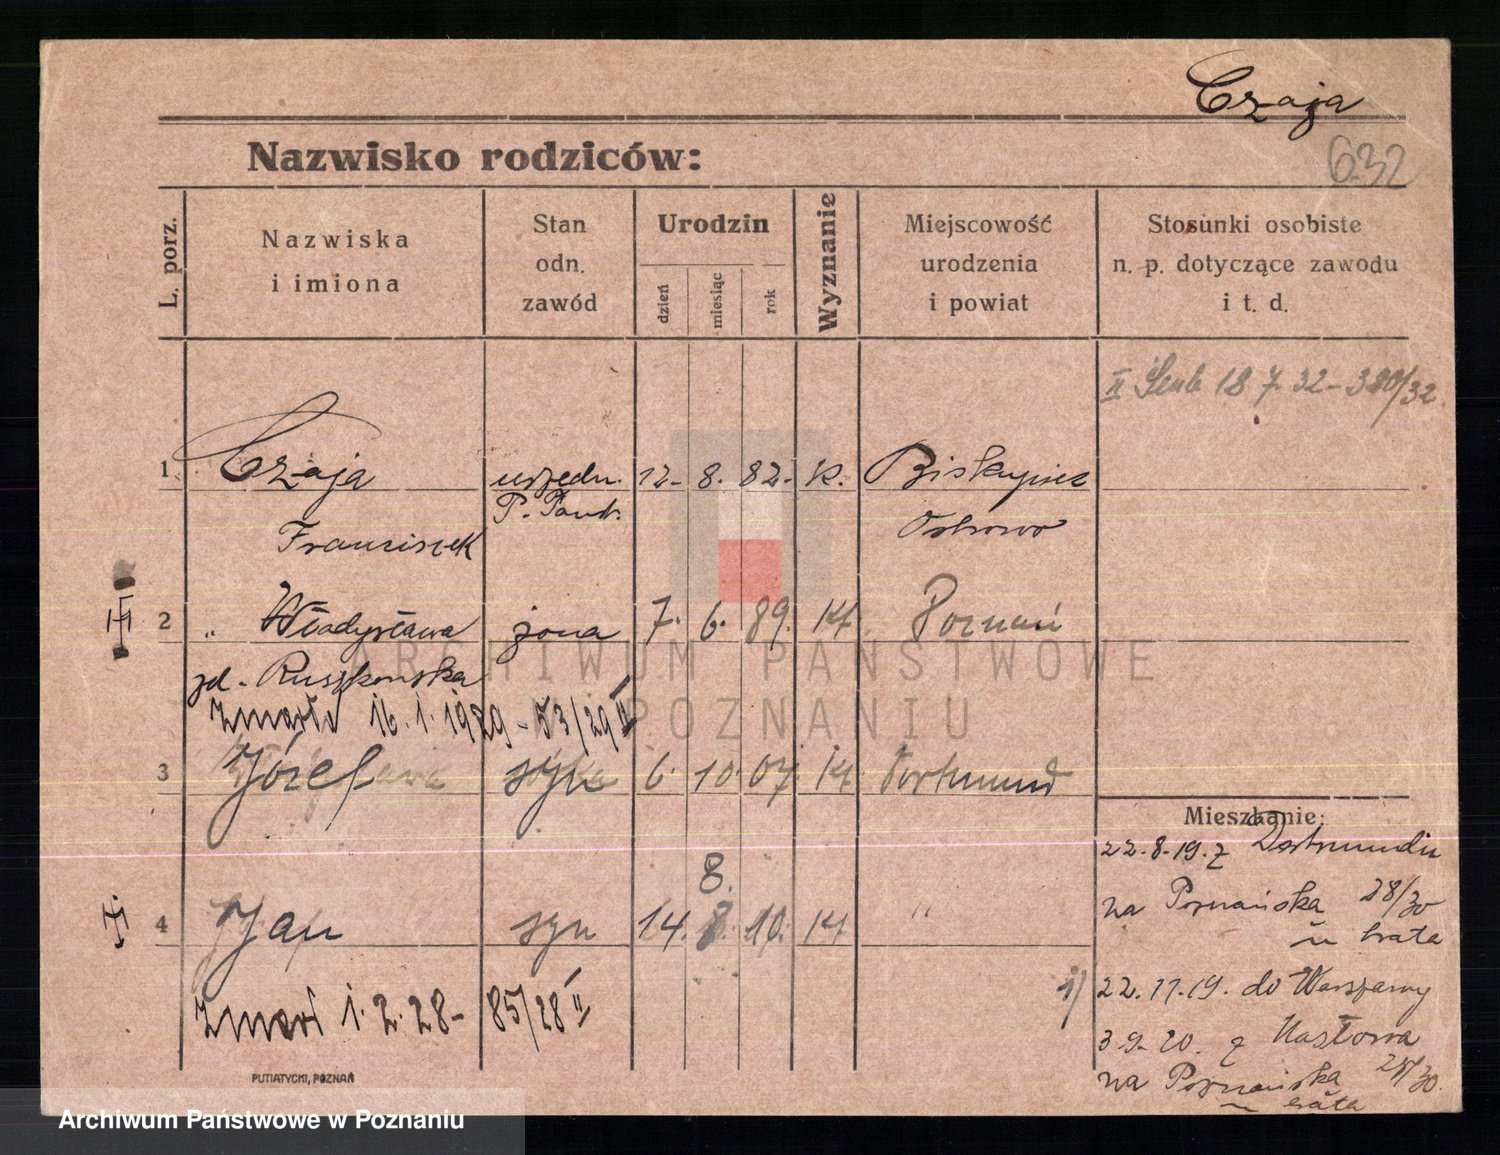 Czaja
Nazwisko rodziców:
632
L. porz.
Nazwiska
i imiona
Stan
odn.
zawód
Urodzin
dzień
miesiąc
rok
Wyznanie
Miejscowość
urodzenia
i powiat
Stosunki osobiste
n. p. dotyczące zawodu
i t. d.
II 18 7 32 - 380/32
1 Czaja urzędn. 12. 8. 82. k. Biskupice
P. Państ.
Franciszek Ostrowo
2 " Władysława żona 7. 6. 89. k. Poznań
zd. Ruszkowska
zmarła 16. 1. 1929 - 53/29 II
3 Józef syn 6. 10. 07. k. Dortmund
8.
4 Jan syn 14. 10. k. "
zmarł 1. 2. 28 - 85/28 II
Mieszkanie:
22.8.19. z Dortmundu
na Poznańska 28/30
u brata
1) 22.11.19. do Warszawy
3.9.20. z
na Poznańska 28/30.
u brata
PUTIATYCKI, POZNAŃ
ARCHIWUM PAŃSTWOWE
W POZNANIU
Archiwum Państwowe w Poznaniu